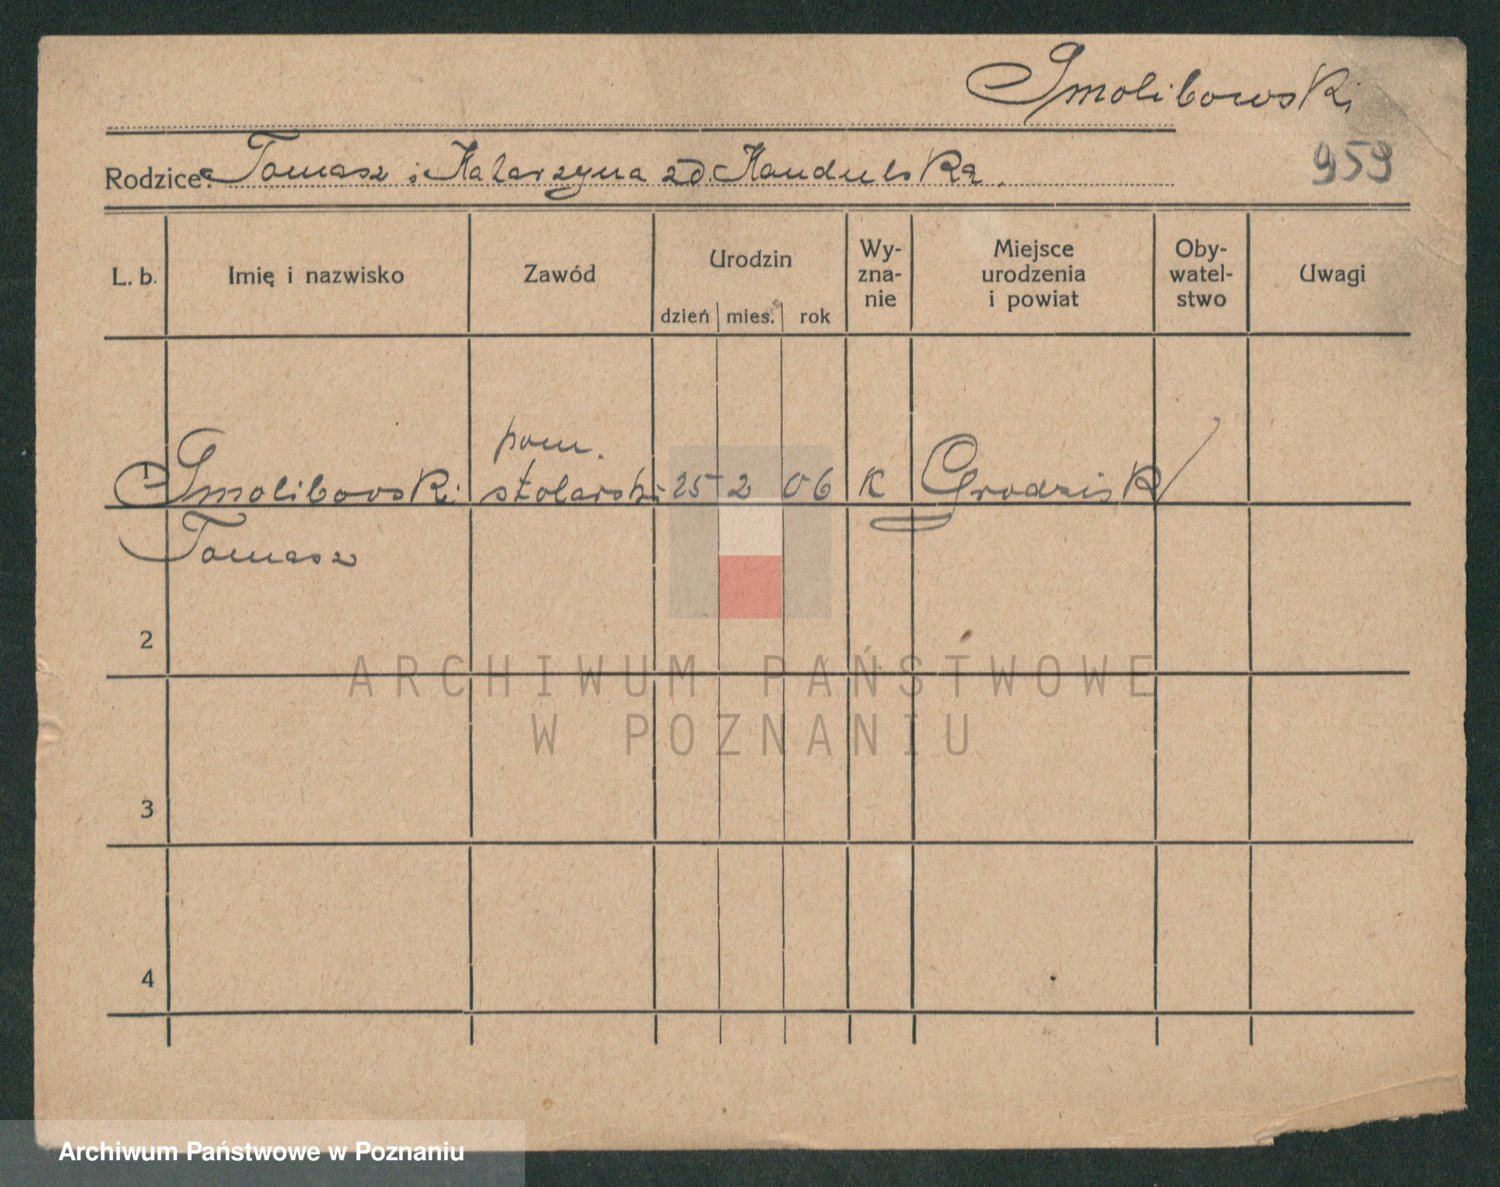 Smolibowski
Rodzice: Tomasz i Katarzyna zd. Kandulska.
959
L. b.
Imię i nazwisko
Zawód
Urodzin
dzień
mies.
rok
Wy-
zna-
nie
Miejsce
urodzenia
i powiat
Oby-
watel-
stwo
Uwagi
1
Smolibowski
Tomasz
pom.
stolarski
25
2
06
K
Grodzisk
2
3
4
ARCHIWUM PAŃSTWOWE
W POZNANIU
Archiwum Państwowe w Poznaniu